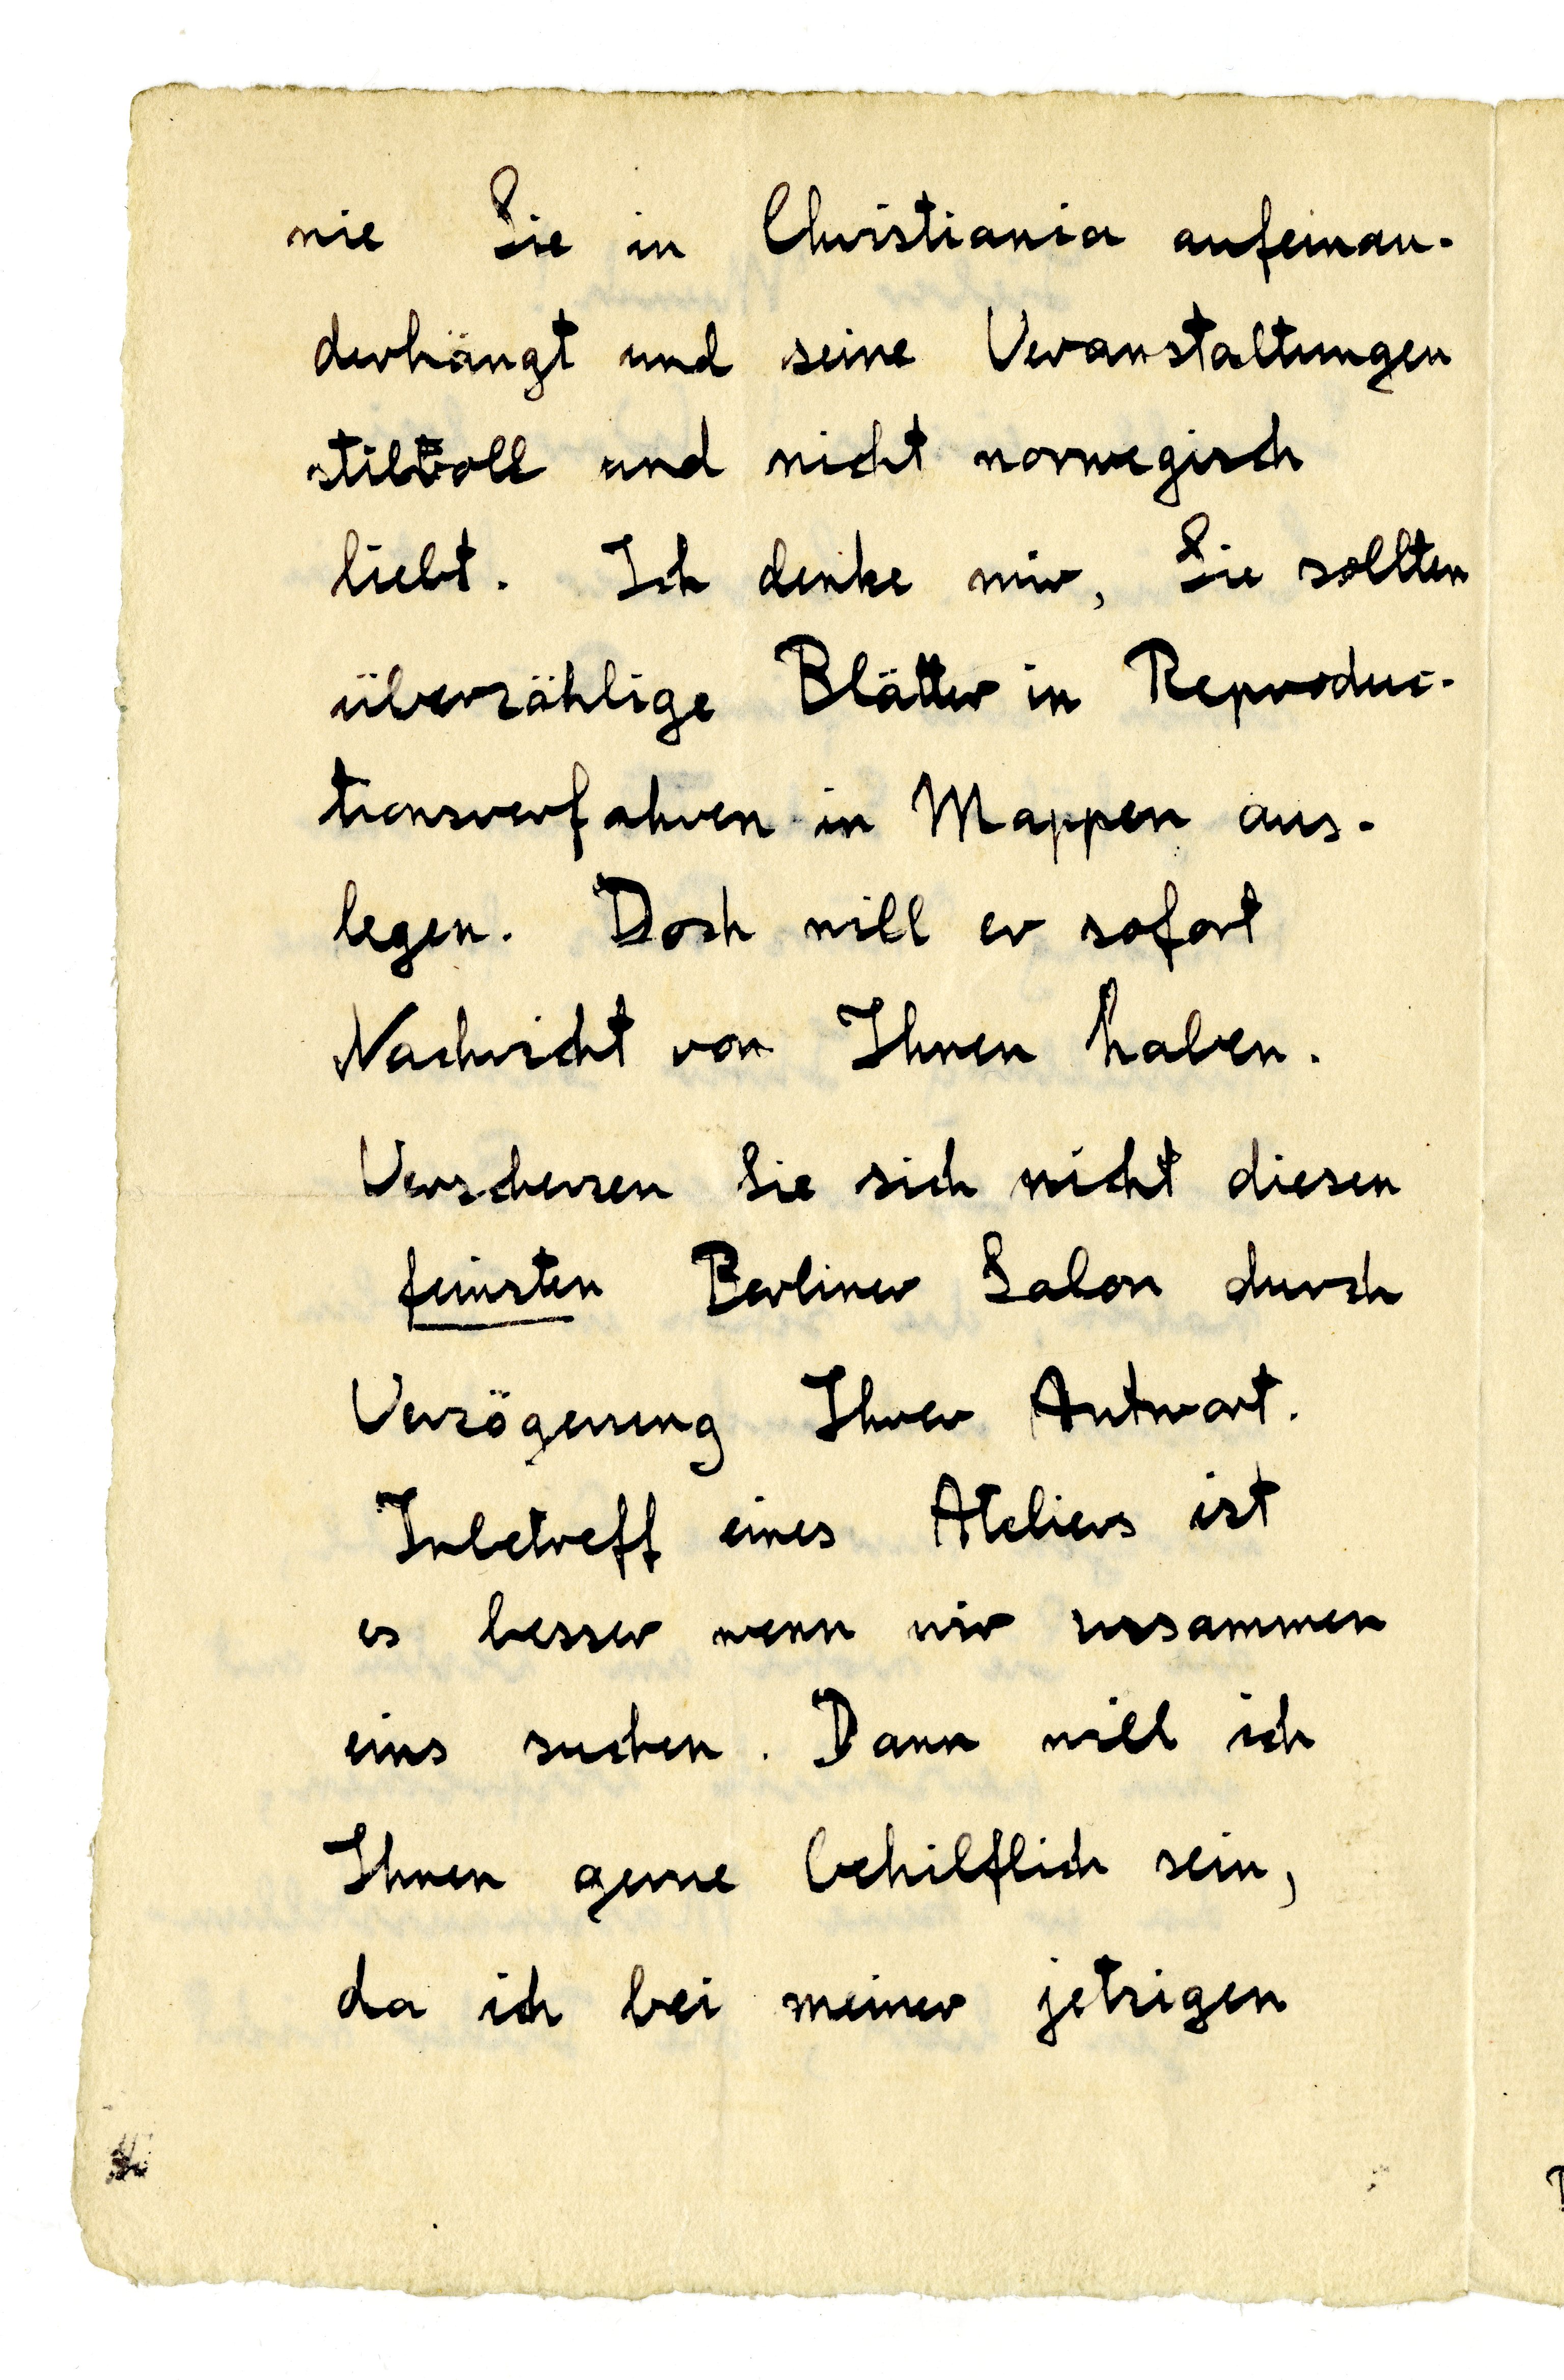 wie Sie in Christiania aufeinan-
derhängt und seine Veranstaltungen
stilvoll und nicht norwegisch
liebt. Ich denke mir, Sie sollten
überzählige Blätter in Reproduc-
tionsverfahren in Mappen aus-
legen. Doch will er sofort
Nachricht von Ihnen haben.
Verscherzen Sie sich nicht diesen
feinsten Berliner Salon durch
Verzögerung Ihrer Antwort.
Inbetreff eines Ateliers ist
es besser wenn wir zusammen
eins suchen. Dann will ich
Ihnen gerne behilflich sein,
da ich bei meiner jetzigen